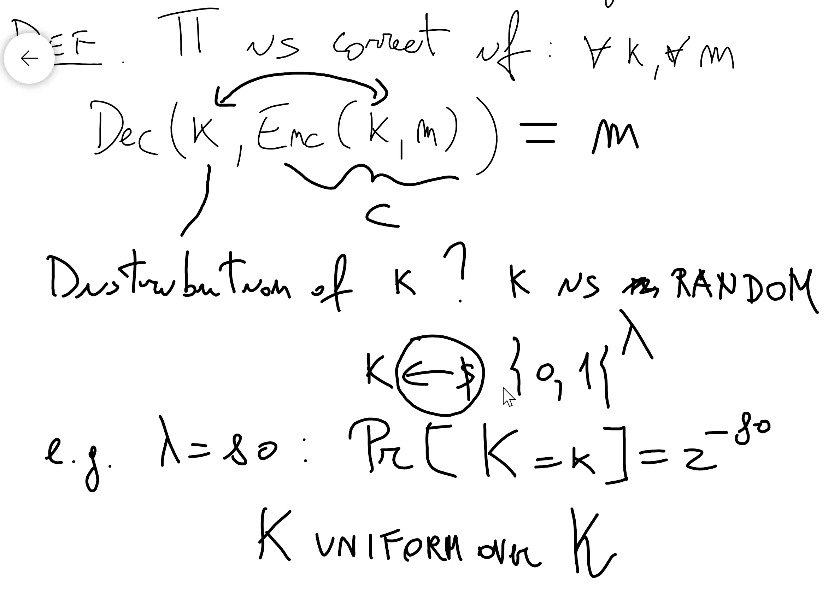 DEF. Π is correct if: ∀ k, ∀ m
Dec(k, Enc(k, m)) = m
c
Distribution of k? k is RANDOM
k ←$ {0, 1}^λ
e.g. λ = 80: Pr[K = k] = 2^-80
K UNIFORM over K